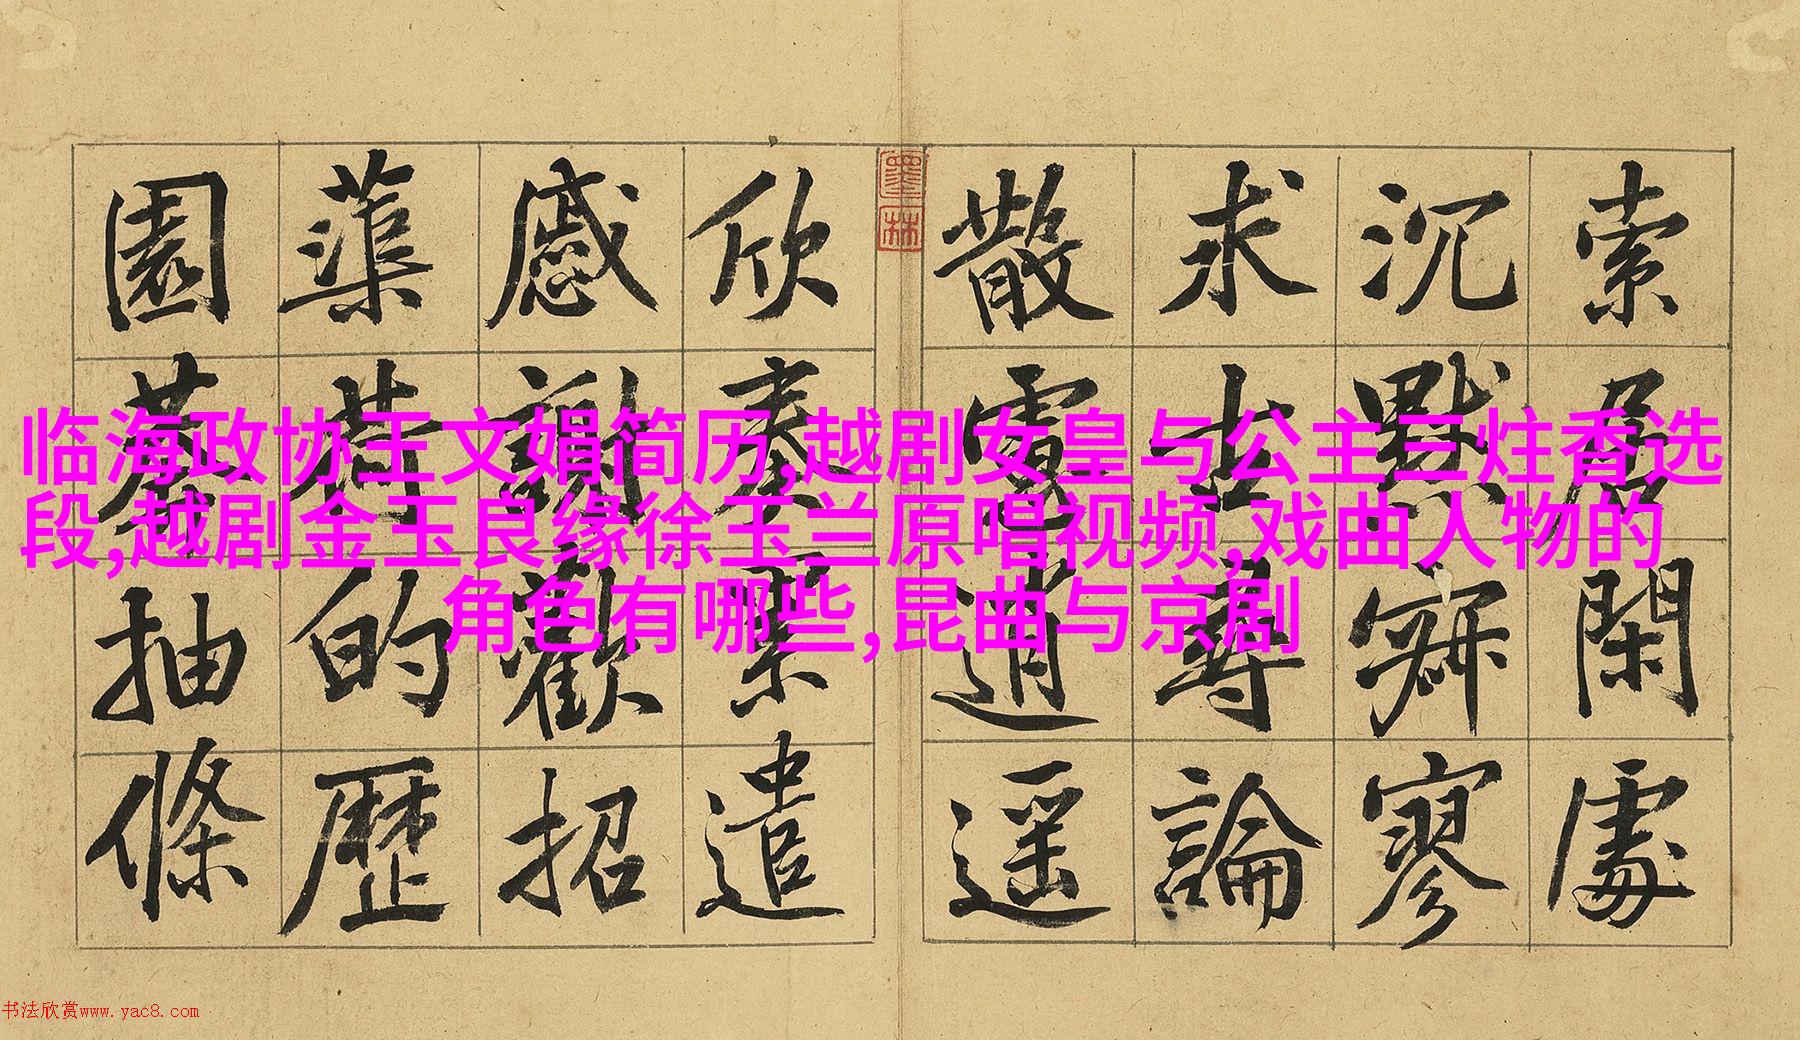 索居閑處
沉默寂寥
求古尋論
散慮逍遥
欣奏累遣
慼謝歡招
蕖荷的歷
園莽抽條
墨林
临海政协王文娟简历,越剧女皇与公主三炷香选
段,越剧金玉良缘徐玉兰原唱视频,戏曲人物的
角色有哪些,昆曲与京剧
书法欣赏www.yac8.com